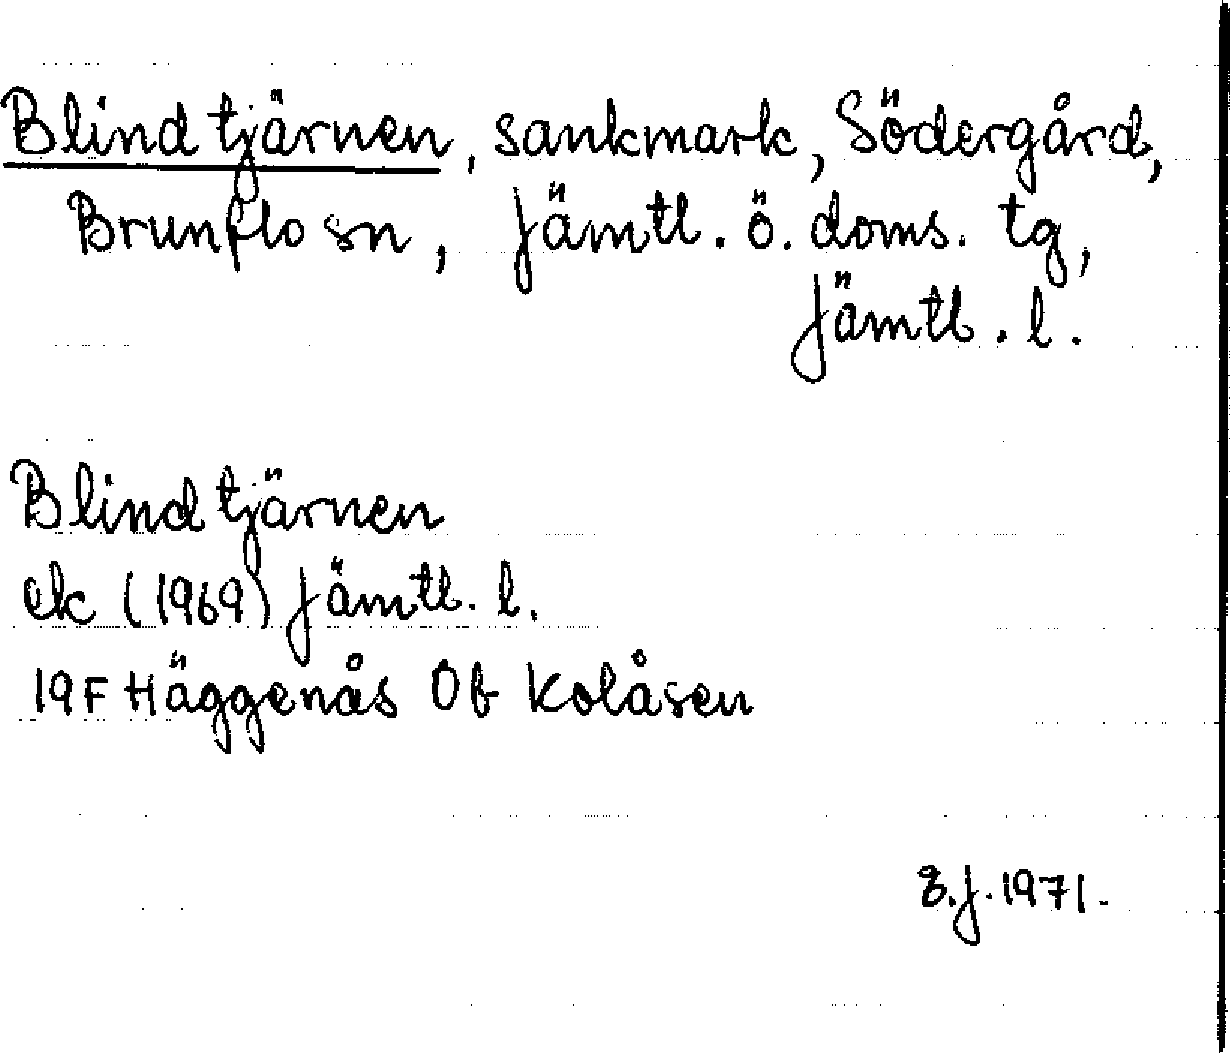 Blindtjärnen, sankmark, Södergård,
Brunflo sn, Jämtl. ö. doms. tg,
Jämtl. l.
Blindtjärnen
ek (1969) Jämtl. l.
19F Häggenås 0b Kolåsen
J. 1971.